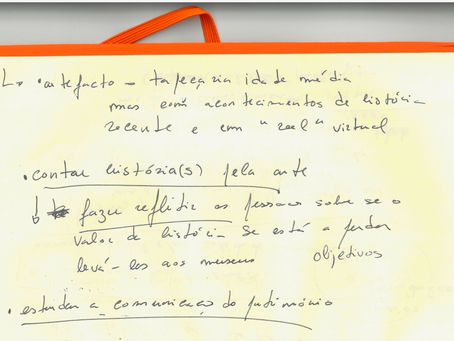 L→ • artefacto – tapeçaria idade média
mas com acontecimentos de história
recente e em "real" virtual
• contar história(s) pela arte
↓ fazer reflitir as pessoas sobre se o
valor de história se está a perder
levá-las aos museus objetivos
• estudar a comunicação do património